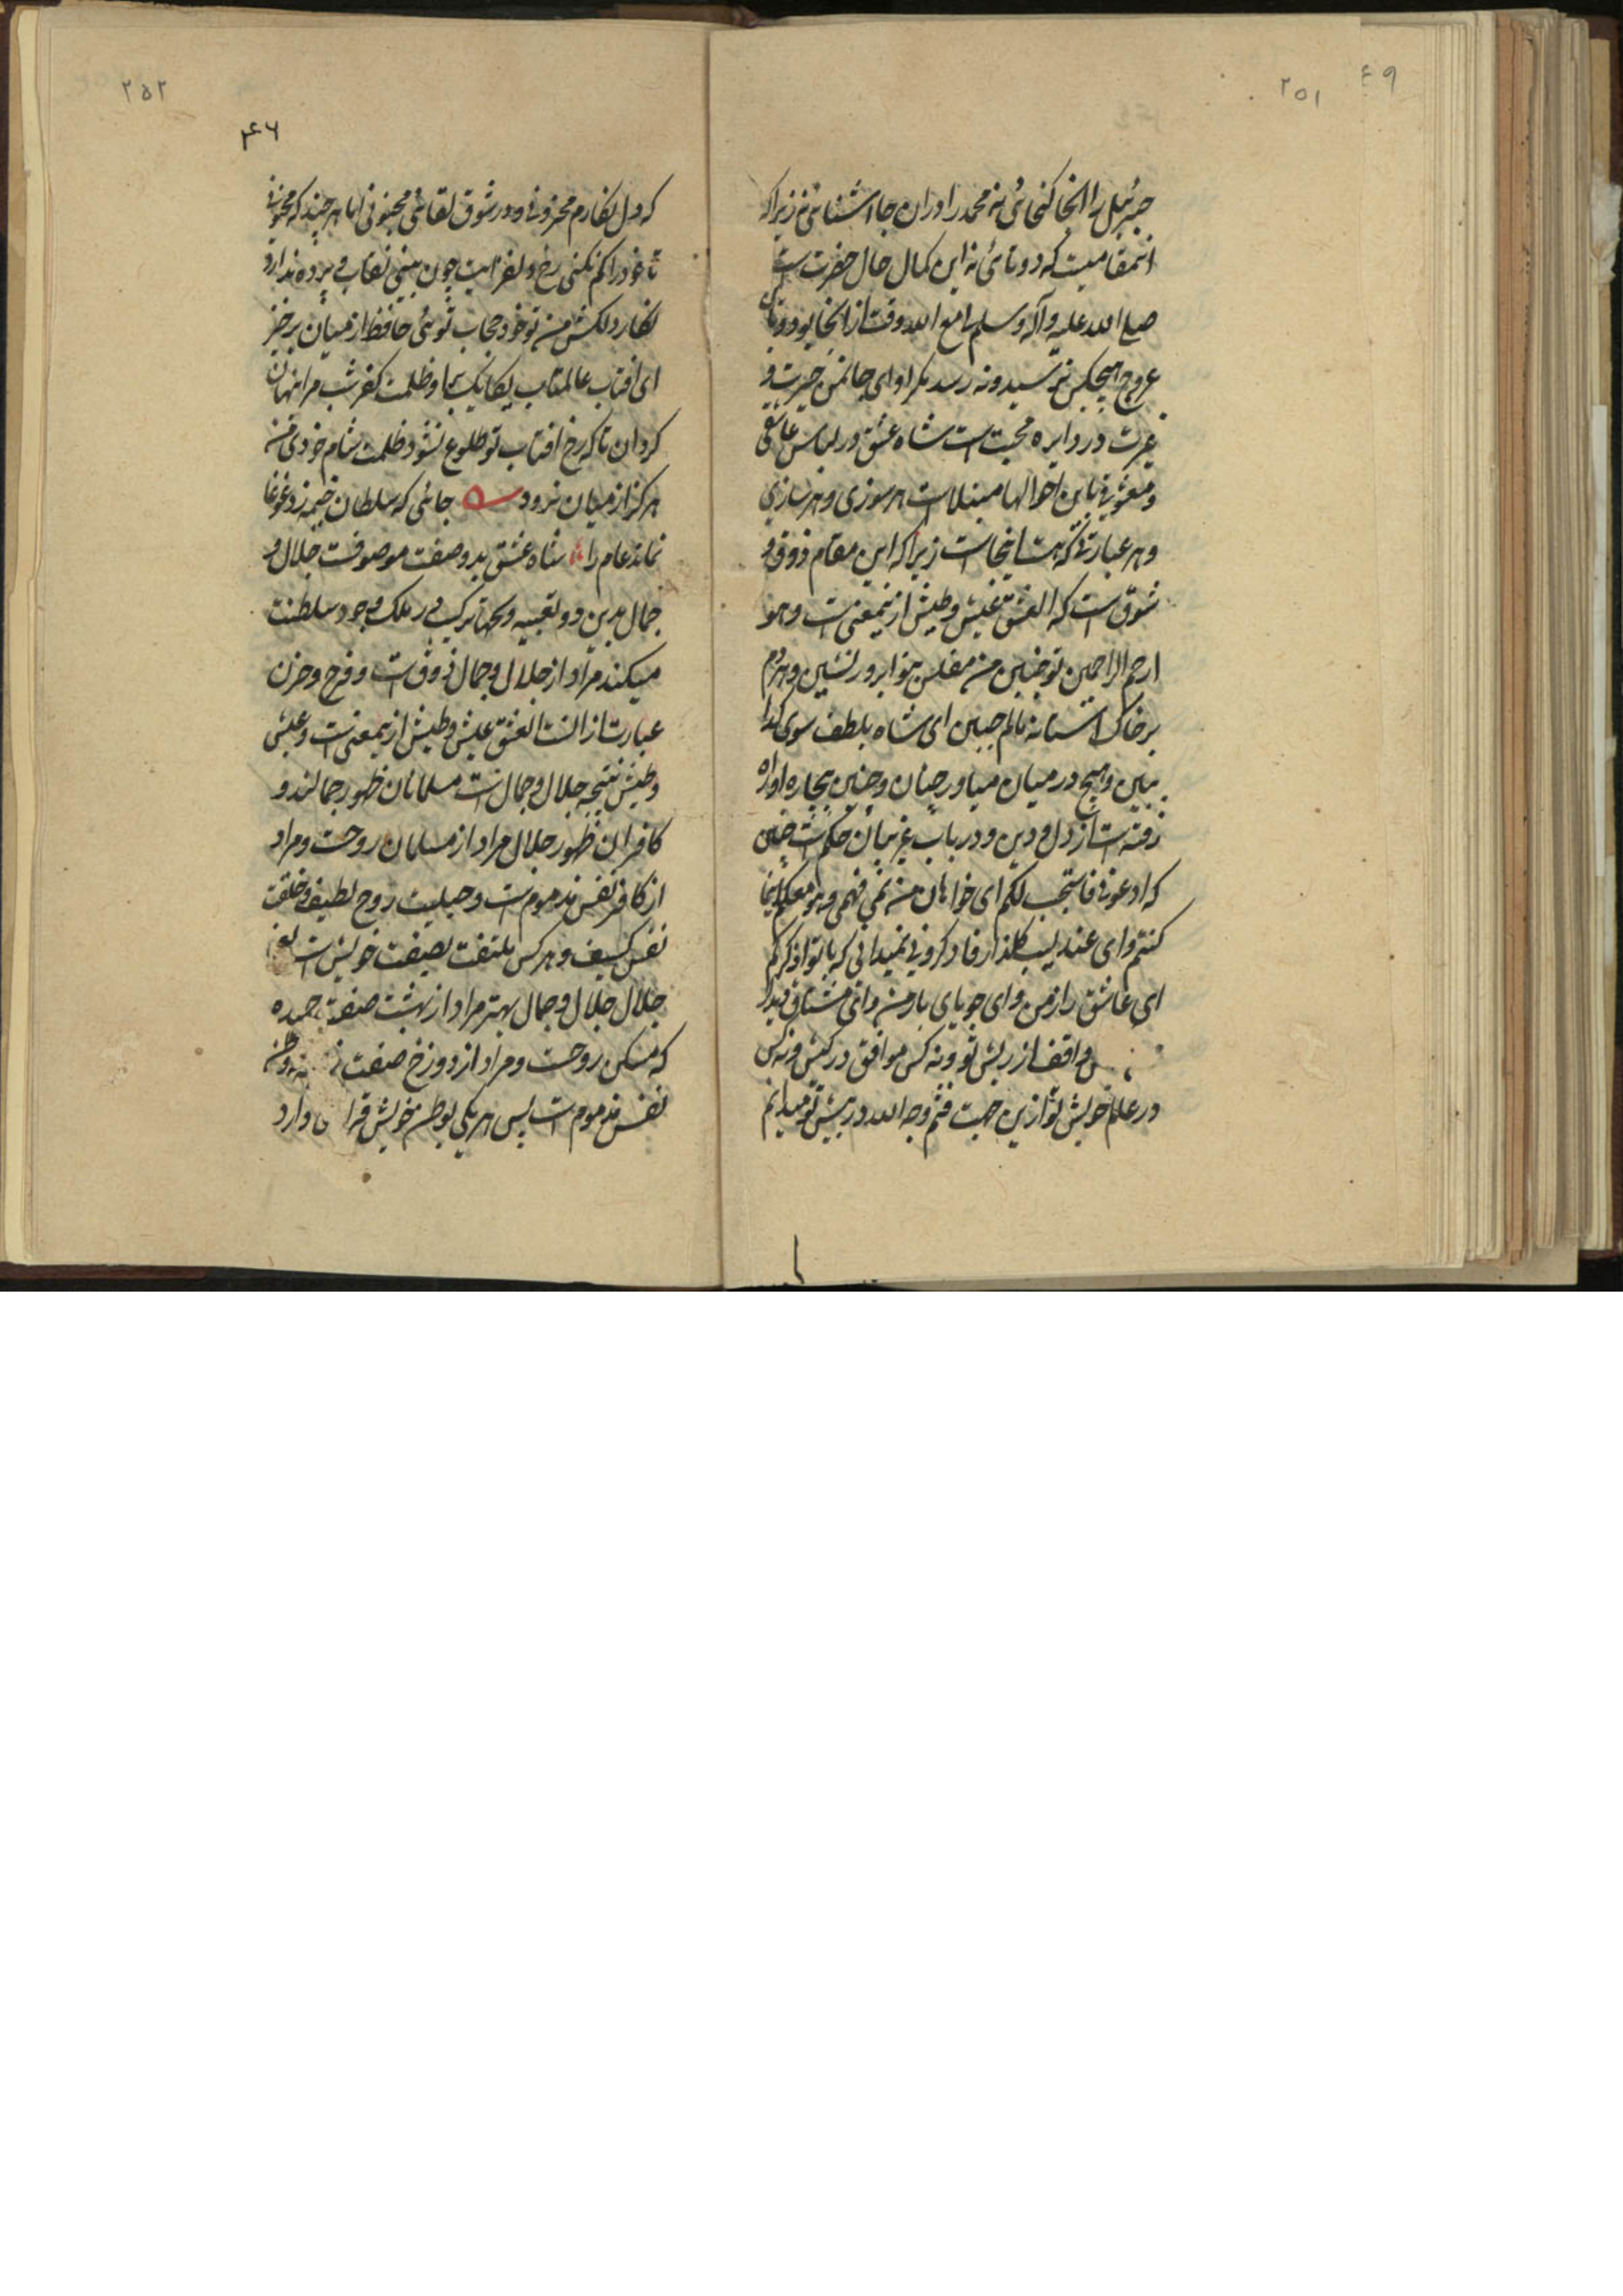 ۲۵۱
۴۹
جبرئیل را انجا کنجائی نه محمد را دران جا اشنائی نه زیرا که
انمقامیست که دوتائی نه این کمال حال حضرت است
صلی الله علیه وآله وسلم لی مع الله وقت از انجا بود وبدان
عروج هیچکس نرسید ونه رسد مکر او ای جانمن حیرت و
غیرت در دایره محبت است شاه عشق در لباس عاشقی
ومعشوقی باین احوالها مبتلا است هر سوزی وهر سازی
وهر عبارتی که هست اینجا است زیرا که این مقام ذوق و
شوق است که العشق عیش وطیش ازینمعنی است وهو
ارحم الراحمین تو چنین من مفلس بینوا بر در نشین وهر دم
بر خاک استانه مالم جبین ای شاه بلطف سوی کدا
ببین وهیچ در میان میاور چنان وچنین بیچاره اواره
رفته است از دل ودین ودر باب غریبان حکم است چنین
که ادعونی فاستجب لکم ای خواهان من نمی فهمی وهو معکم اینما
کنتم وای عندلیب کلذار فاذکرونی نمیدانی که با تو اذکرکم
ای عاشق راز من وای جویای یار من وای مشتاق دیدار
واقف از ریش تو ونه کس موافق در کیش ونه کس
در علم خویش تو ازین جهت فثم وجه الله در پیش تو میدانم
۲۵۲
۴۶
که دل نکارم محزونی ودر شوق لقائی مجنونی اما هر چند که مجنونی
تا خود را کم نکنی رخ دلفریبت چون بینی نقاب و پرده ندارد
نکار دلکش من تو خود حجاب توئی حافظ از میان برخیز
ای افتاب عالمتاب یکایک بیا وظلمت کفر شب مرا پنهان
کردان تا که رخ افتاب تو طلوع نشود ظلمت شام خودی من
هرکز از میان نرود ه جائی که سلطان خیمه زد غوغا
نماند عام را شاه عشق بدو صفت موصوفست جلال و
جمال بدین دو تعبیه وبجهات ترکیب در ملک وجود سلطنت
میکند مراد از جلال وجمال ذوق است وفرح وحزن
عبارت از انست العشق عیش وطیش ازینمعنی است وعیش
وطیش نتیجه جلال وجمال است مسلمانان ظهور جمالند و
کافران ظهور جلال مراد از مسلمان روحست ومراد
از کافر نفس مذموم است وجبلیت روح لطیف وخلقت
نفس کسیف وهر کس ملتفت بصفت خویش است
جلال جلال وجمال بهتر مراد از بهشت صفت حمیده
که مسکن روحست ومراد از دوزخ صفت
نفس مذموم است پس هر یکی بوطن خویش دارد